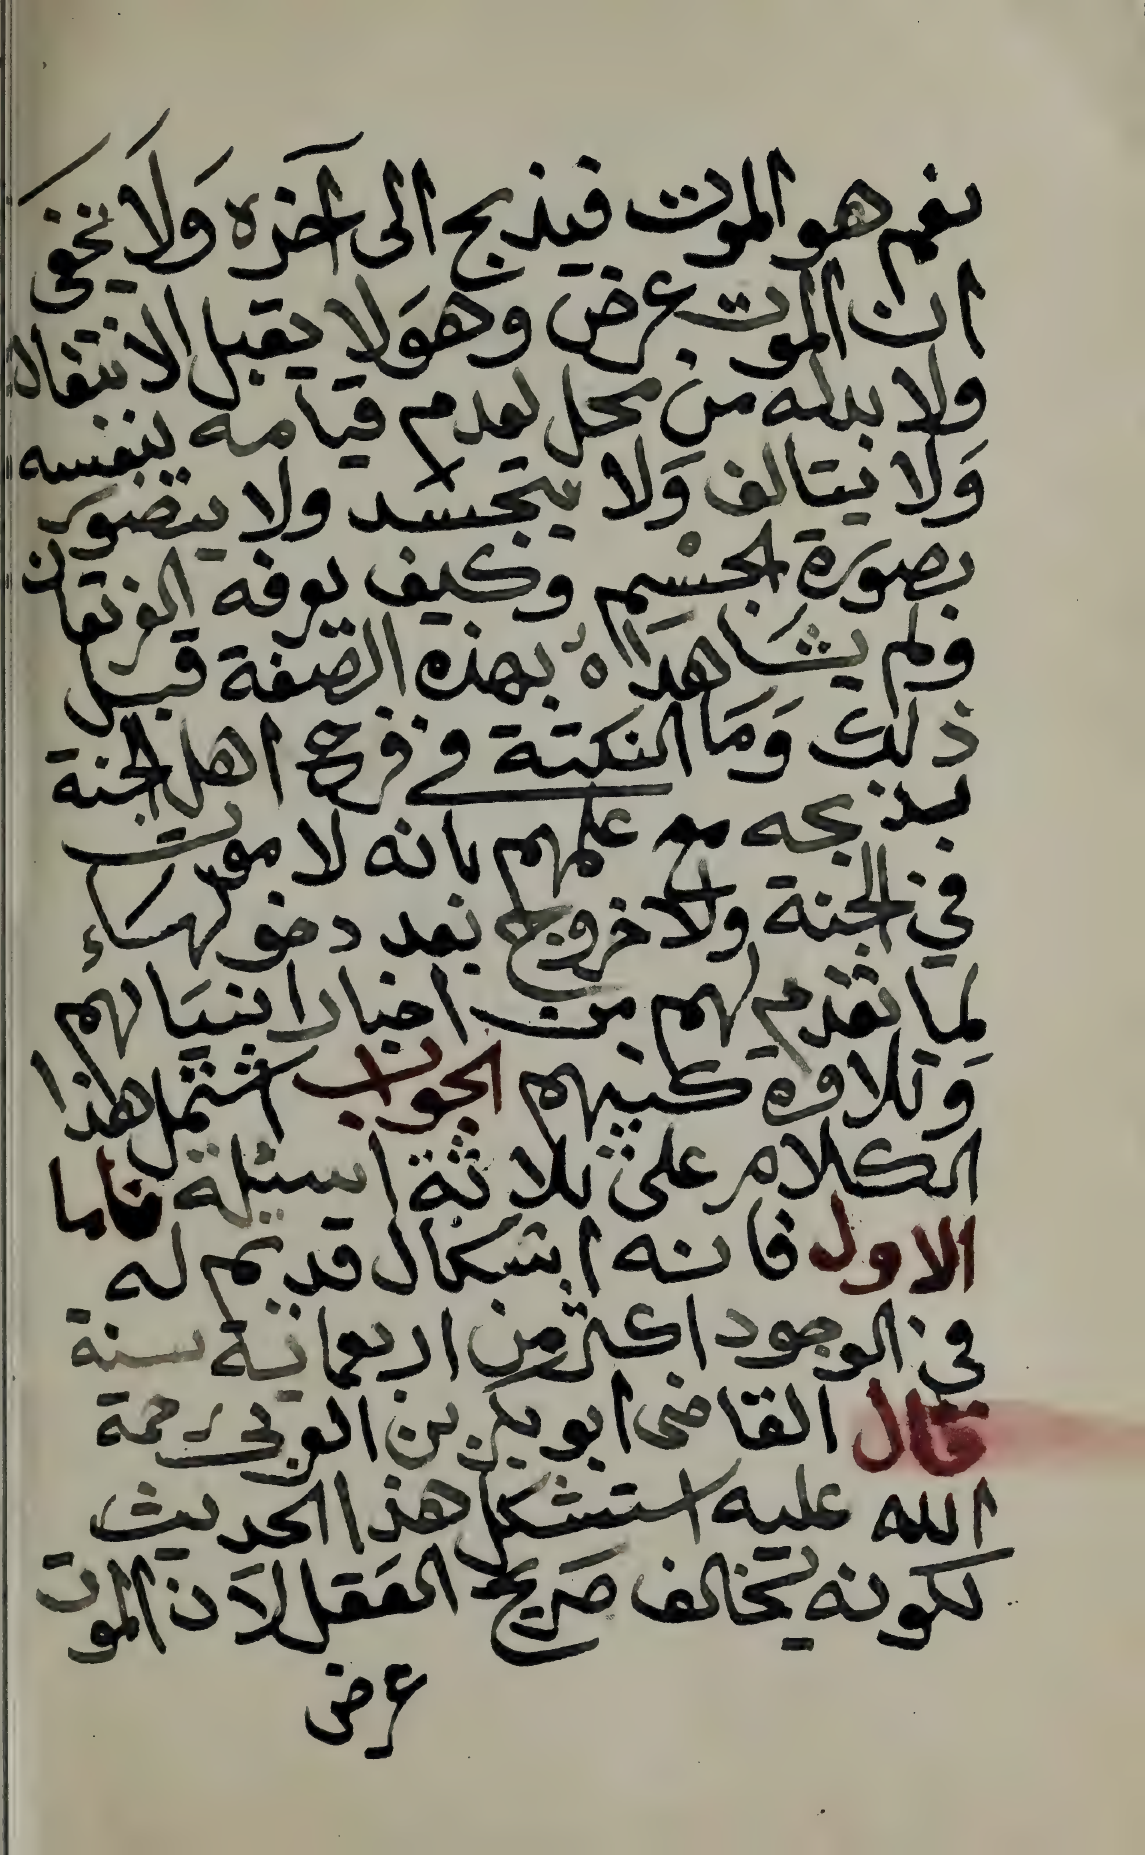 نعم هو الموت فيذبح الى آخره وَلَا يخفى
ان الموت عرض وهَولا يقبل الانتقال
ولا بدله من محل لعدم قيامه بنفسه
وَلا يتالف وَلا يتجسد ولا يتصور
بصورة الجسْم وكيف يعرفه الفريقان
ولم يشاهدَاهُ بهذه الصفة قبل
ذلك وَمَا النكتة في فرح اهل الجنة
بذبحه مع علمهم بانه لا موت
في الجنة ولا خروج بعد دخولها
لما تقدم لهم من اخبار انبيَالهم
وَتلاوة كتبهم الجواب اشتمل هذا
الكلام على ثلاثة اسئلة فاما
الاول فانه اشكال قديم له
في الوجود اكثر من اربعماية سنة
قال القاضى ابو بكر بن العربي رحمة
الله عليه استشكل هذا الحديث
لكونه يخالف صريح العَقل لاَن الموت
عرض